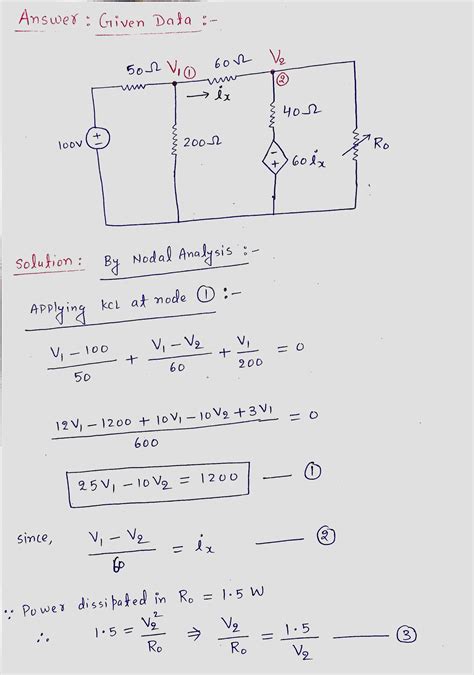 Answer : Given Data :-
50Ω V₁ ① 60Ω V₂
→ iₓ ②
100V + − 200Ω 40Ω R₀
− + 60 iₓ
Solution : By Nodal Analysis :-
Applying KCL at node ① :-
(V₁ − 100)/50 + (V₁ − V₂)/60 + V₁/200 = 0
(12V₁ − 1200 + 10V₁ − 10V₂ + 3V₁)/600 = 0
25V₁ − 10V₂ = 1200 — ①
since, (V₁ − V₂)/60 = iₓ — ②
∵ Power dissipated in R₀ = 1.5 W
∴ 1.5 = V₂²/R₀ ⇒ V₂/R₀ = 1.5/V₂ — ③